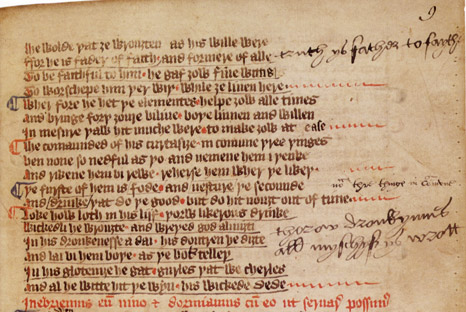 He wolde þat ȝe wrouȝten as his wille were
Ffor he is fader of faith and formere of alle truth ys father to fayth
To be faithful to him he gaf ȝow fiue wittis
To worschepe him þer wiþ while ȝe liuen here
Wher fore he het þe elementes helpe ȝow alle times
And bringe forþ ȝoure biliue boþe linnen and willen
In mesure þauȝ hit muche were to make ȝow at ese
He comaunded of his curtasie in comune þree þinges
ben none so nedful as þo and nemene hem i þenke
And rikene hem bi rewe reherse hem wher þe likeþ
Þe furste of hem is fode and vesture þe secounde
and drinke þat do þe good but do hit nouȝt out of tume
Loke how loth in his lijf þorw likerous drinke
Wickedli he wrouȝte and wreþed god almiȝti
In his dronkenesse a dai his douȝtren he diȝte
And lai bi hem boþe as þe bok telleþ
In his glotenie he gat gurles þat we cherles
And al he witte hit þe wyn his wickede dede
Inebriemus eū uino & dormiamus cū eo ut seruare possimꝰ